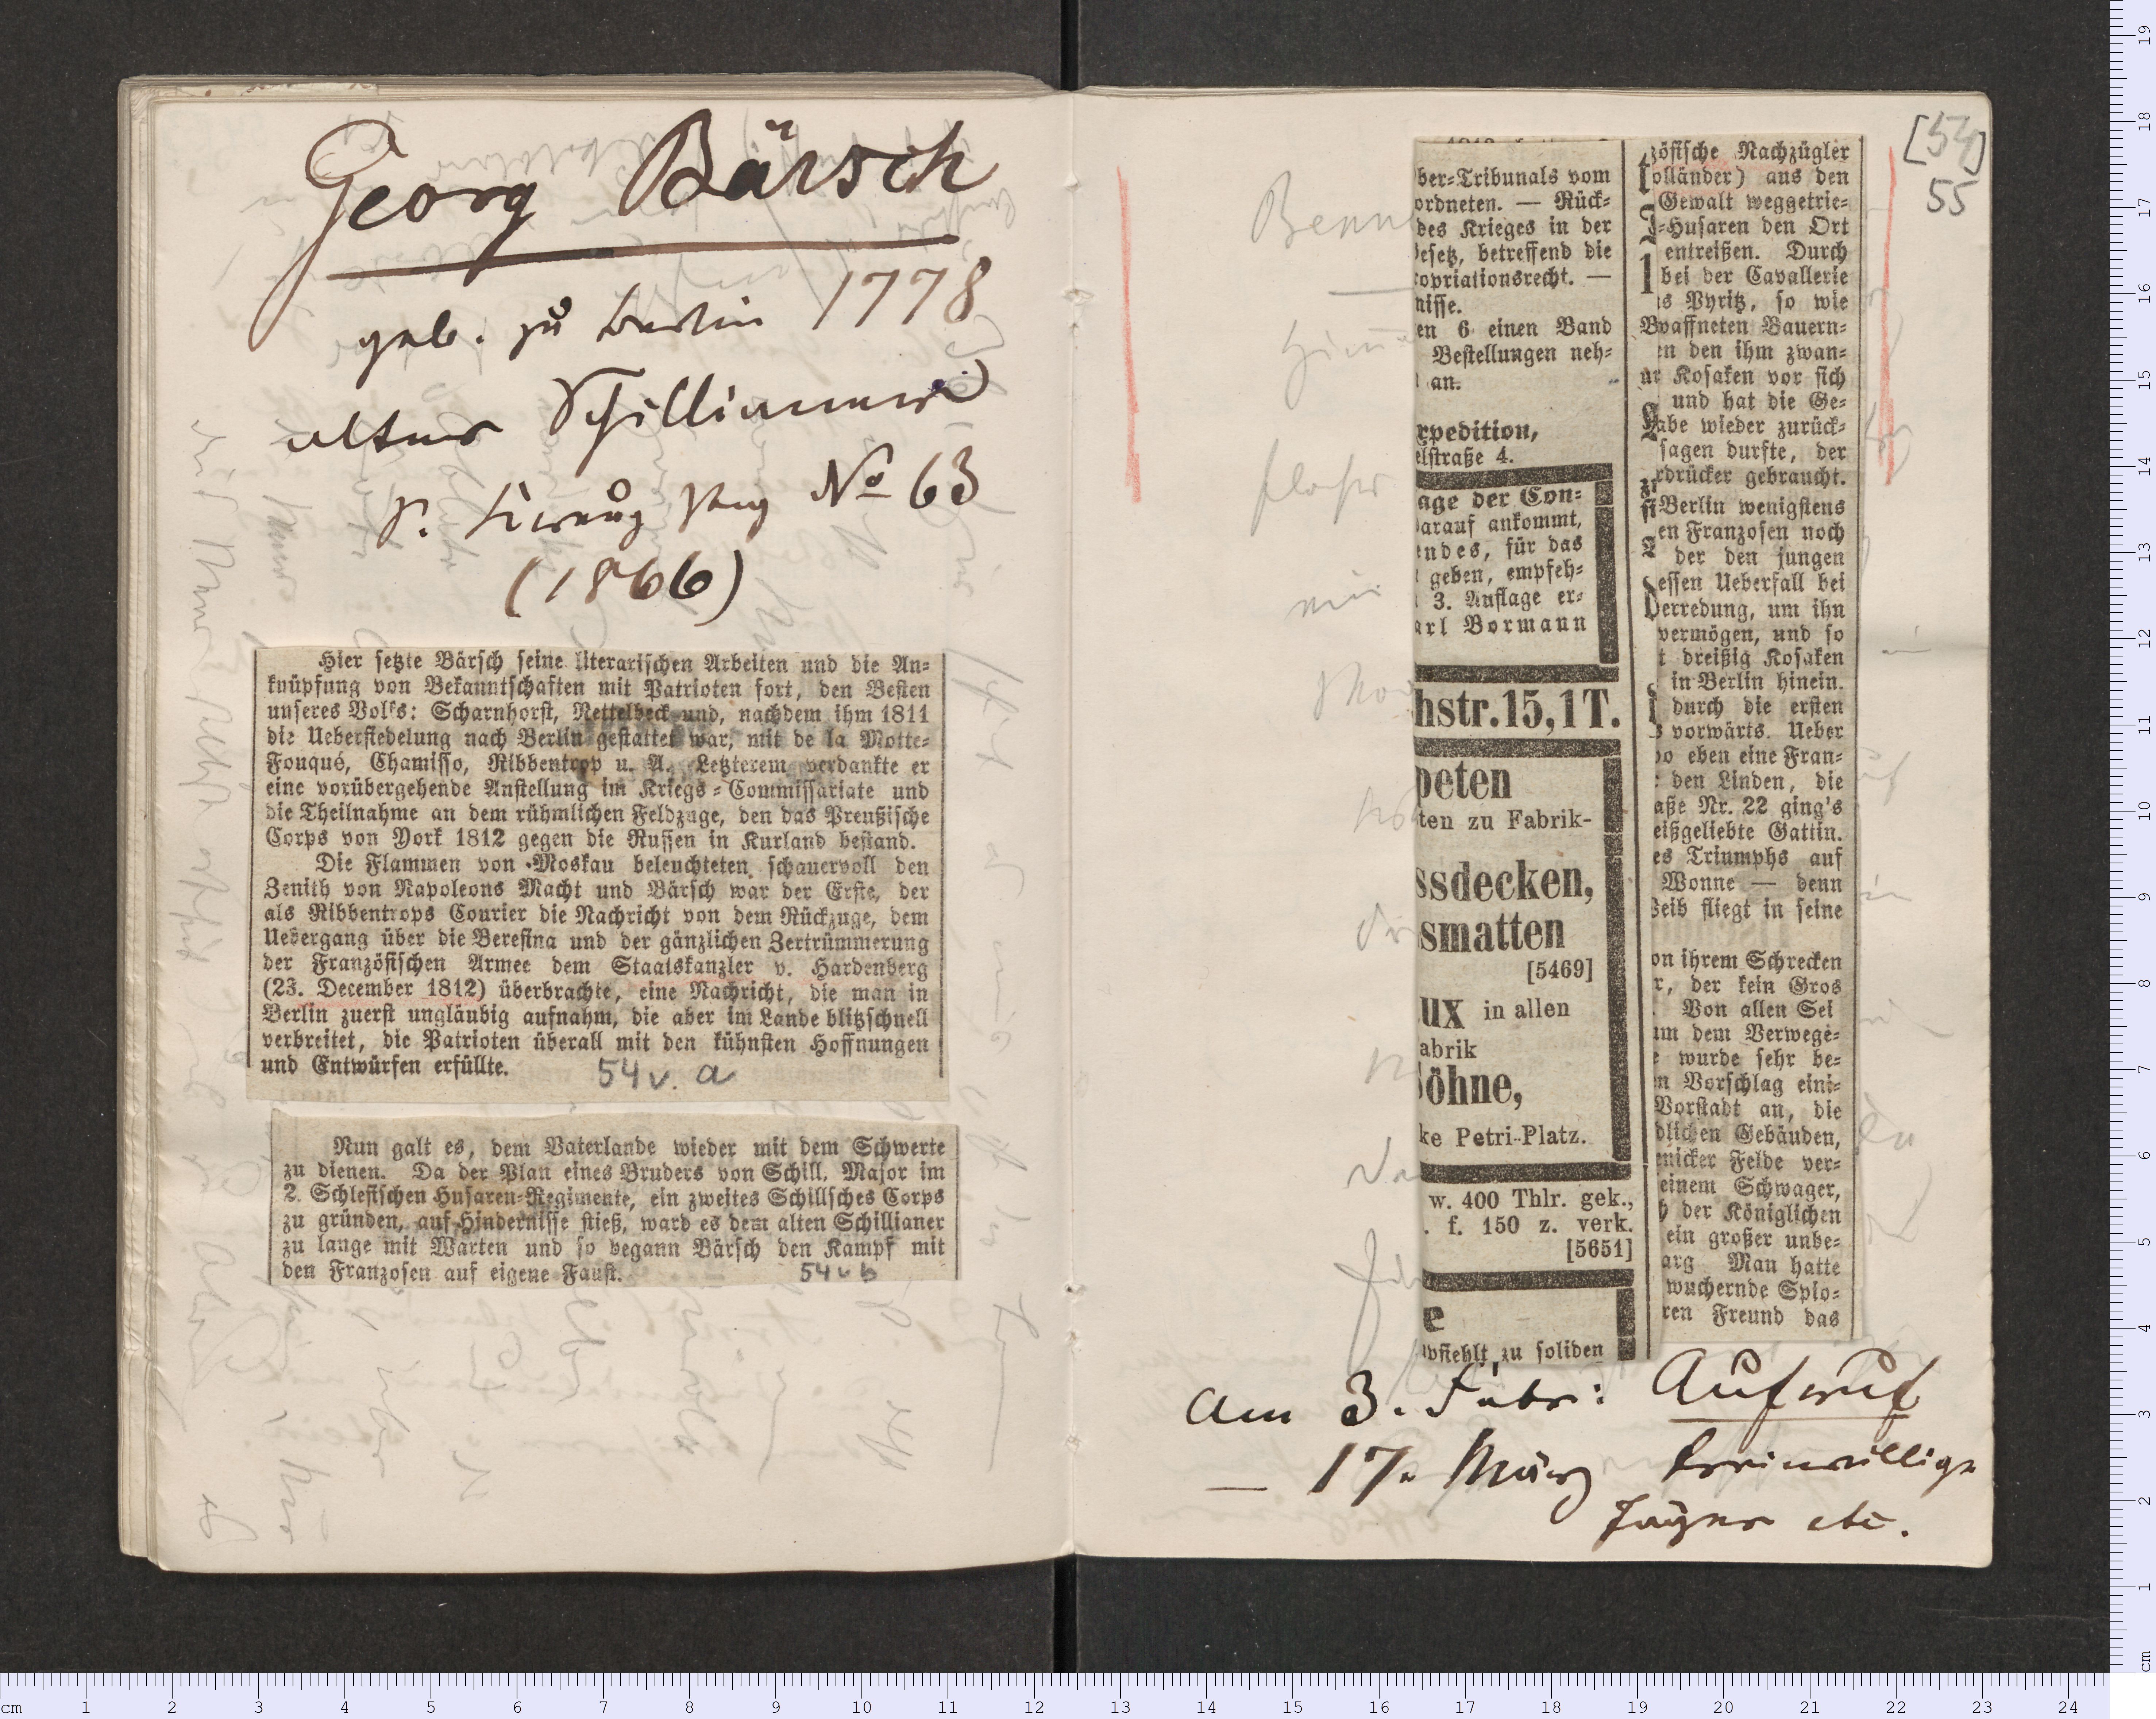 Georg Bärsch
geb. zu Berlin 1778
alter Schillianer
s. Kreuz Ztng No 63
(1866)
Hier setzte Bärsch seine literarischen Arbeiten und die An=
knüpfung von Bekanntschaften mit Patrioten fort, den Besten
unseres Volks: Scharnhorst, Nettelbeck und, nachdem ihm 1811
die Uebersiedelung nach Berlin gestattet war, mit de la Motte=
Fouqué, Chamisso, Ribbentrop u. A. Letzterem verdankte er
eine vorübergehende Anstellung im Kriegs=Commissariate und
die Theilnahme an dem rühmlichen Feldzuge, den das Preußische
Corps von York 1812 gegen die Russen in Kurland bestand.
Die Flammen von Moskau beleuchteten schauervoll den
Zenith von Napoleons Macht und Bärsch war der Erste, der
als Ribbentrops Courier die Nachricht von dem Rückzuge, dem
Uebergang über die Beresina und der gänzlichen Zertrümmerung
der Französischen Armee dem Staatskanzler v. Hardenberg
(23. December 1812) überbrachte, eine Nachricht, die man in
Berlin zuerst ungläubig aufnahm, die aber im Lande blitzschnell
verbreitet, die Patrioten überall mit den kühnsten Hoffnungen
und Entwürfen erfüllte.
54v. a
Nun galt es, dem Vaterlande wieder mit dem Schwerte
zu dienen. Da der Plan eines Bruders von Schill, Major im
2. Schlesischen Husaren=Regimente, ein zweites Schillsches Corps
zu gründen, auf Hindernisse stieß, ward es dem alten Schillianer
zu lange mit Warten und so begann Bärsch den Kampf mit
den Franzosen auf eigene Faust.
54v b
[54]
55
ber=Tribunals vom
ordneten. — Rück=
des Krieges in der
esetz, betreffend die
opriationsrecht. —
nisse.
en 6 einen Band
Bestellungen neh=
an.
xpedition,
elstraße 4.
age der Con=
arauf ankommt,
endes, für das
geben, empfeh=
3. Auflage er=
arl Bormann
hstr. 15, 1 T.
peten
ten zu Fabrik-
ssdecken,
smatten
[5469]
ux in allen
abrik
öhne,
ke Petri-Platz.
w. 400 Thlr. gek.,
. f. 150 z. verk.
[5651]
e
pfiehlt zu soliden
zösische Nachzügler
olländer) aus den
Gewalt weggetrie=
=Husaren den Ort
entreißen. Durch
bei der Cavallerie
s Pyritz, so wie
waffneten Bauern=
en den ihm zwan=
ur Kosaken vor sich
und hat die Ge=
abe wieder zurück=
sagen durfte, der
rdrücker gebraucht.
Berlin wenigstens
en Franzosen noch
der den jungen
essen Ueberfall bei
erredung, um ihn
vermögen, und so
t dreißig Kosaken
in Berlin hinein.
durch die ersten
s vorwärts. Ueber
wo eben eine Fran=
: den Linden, die
aße Nr. 22 ging's
eißgeliebte Gattin.
es Triumphs auf
Wonne — denn
Weib fliegt in seine
on ihrem Schrecken
r, der kein Gros
. Von allen Sei
um dem Verwege=
e wurde sehr be=
n Vorschlag eini=
Vorstadt an, die
dlichen Gebäuden,
nicker Felde ver=
einem Schwager,
h der Königlichen
ein großer unbe=
arg Man hatte
wuchernde Spio=
ren Freund das
Am 3. Febr: Aufruf
— 17. März Freiwillige
Jäger etc.